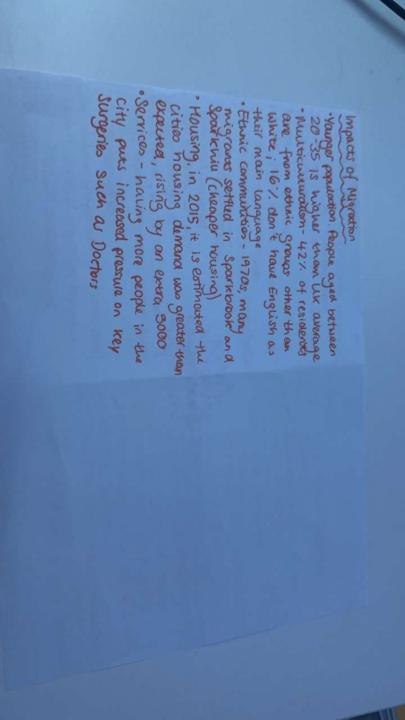 Impacts of Migration
• Younger population People aged between
20-35 is higher than UK average
• Multiculturalism - 42% of residents
are from ethnic groups other than
White; 16% don't have English as
their main language
• Ethnic communities - 1970s, many
migrants settled in Sparkbrook and
Sparkhill (cheaper housing)
• Housing, in 2015, it is estimated the
cities housing demand was greater than
expected, rising by an extra 3000
• Services - having more people in the
city puts increased pressure on key
surgeries such as Doctors